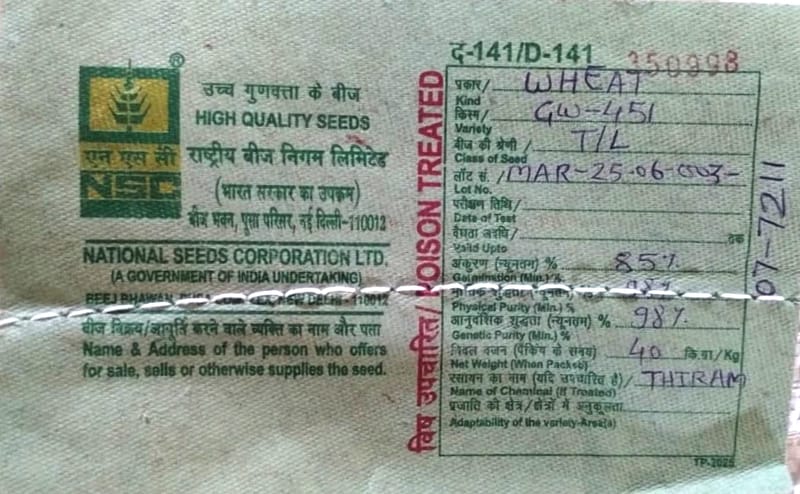 ®
एन एस सी
NSC
उच्च गुणवत्ता के बीज
HIGH QUALITY SEEDS
राष्ट्रीय बीज निगम लिमिटेड
(भारत सरकार का उपक्रम)
बीज भवन, पूसा परिसर, नई दिल्ली-110012
NATIONAL SEEDS CORPORATION LTD.
(A GOVERNMENT OF INDIA UNDERTAKING)
BEEJ BHAWAN, NEW DELHI - 110012
बीज विक्रय/आपूर्ति करने वाले व्यक्ति का नाम और पता
Name & Address of the person who offers
for sale, sells or otherwise supplies the seed.
विष उपचारित/POISON TREATED
द-141/D-141
350998
प्रकार/ WHEAT
Kind
किस्म/ GW-451
Variety
बीज की श्रेणी/ T/L
Class of Seed
लॉट सं. /MAR-25-06-003-
Lot No.
07-7211
परीक्षण तिथि/
Date of Test
वैधता अवधि/ तक
Valid Upto
अंकुरण (न्यूनतम) % 85%
Germination (Min.) %
भौतिक शुद्धता (न्यूनतम) % 98%
Physical Purity (Min.) %
आनुवंशिक शुद्धता (न्यूनतम) % 98%
Genetic Purity (Min.) %
निवल वजन (पैकिंग के समय) 40 कि.ग्रा/Kg
Net Weight (When Packed)
रसायन का नाम (यदि उपचारित है)/ THIRAM
Name of Chemical (If Treated)
प्रजाति की क्षेत्र/क्षेत्रों में अनुकूलता
Adaptability of the variety-Area(s)
TP-2025